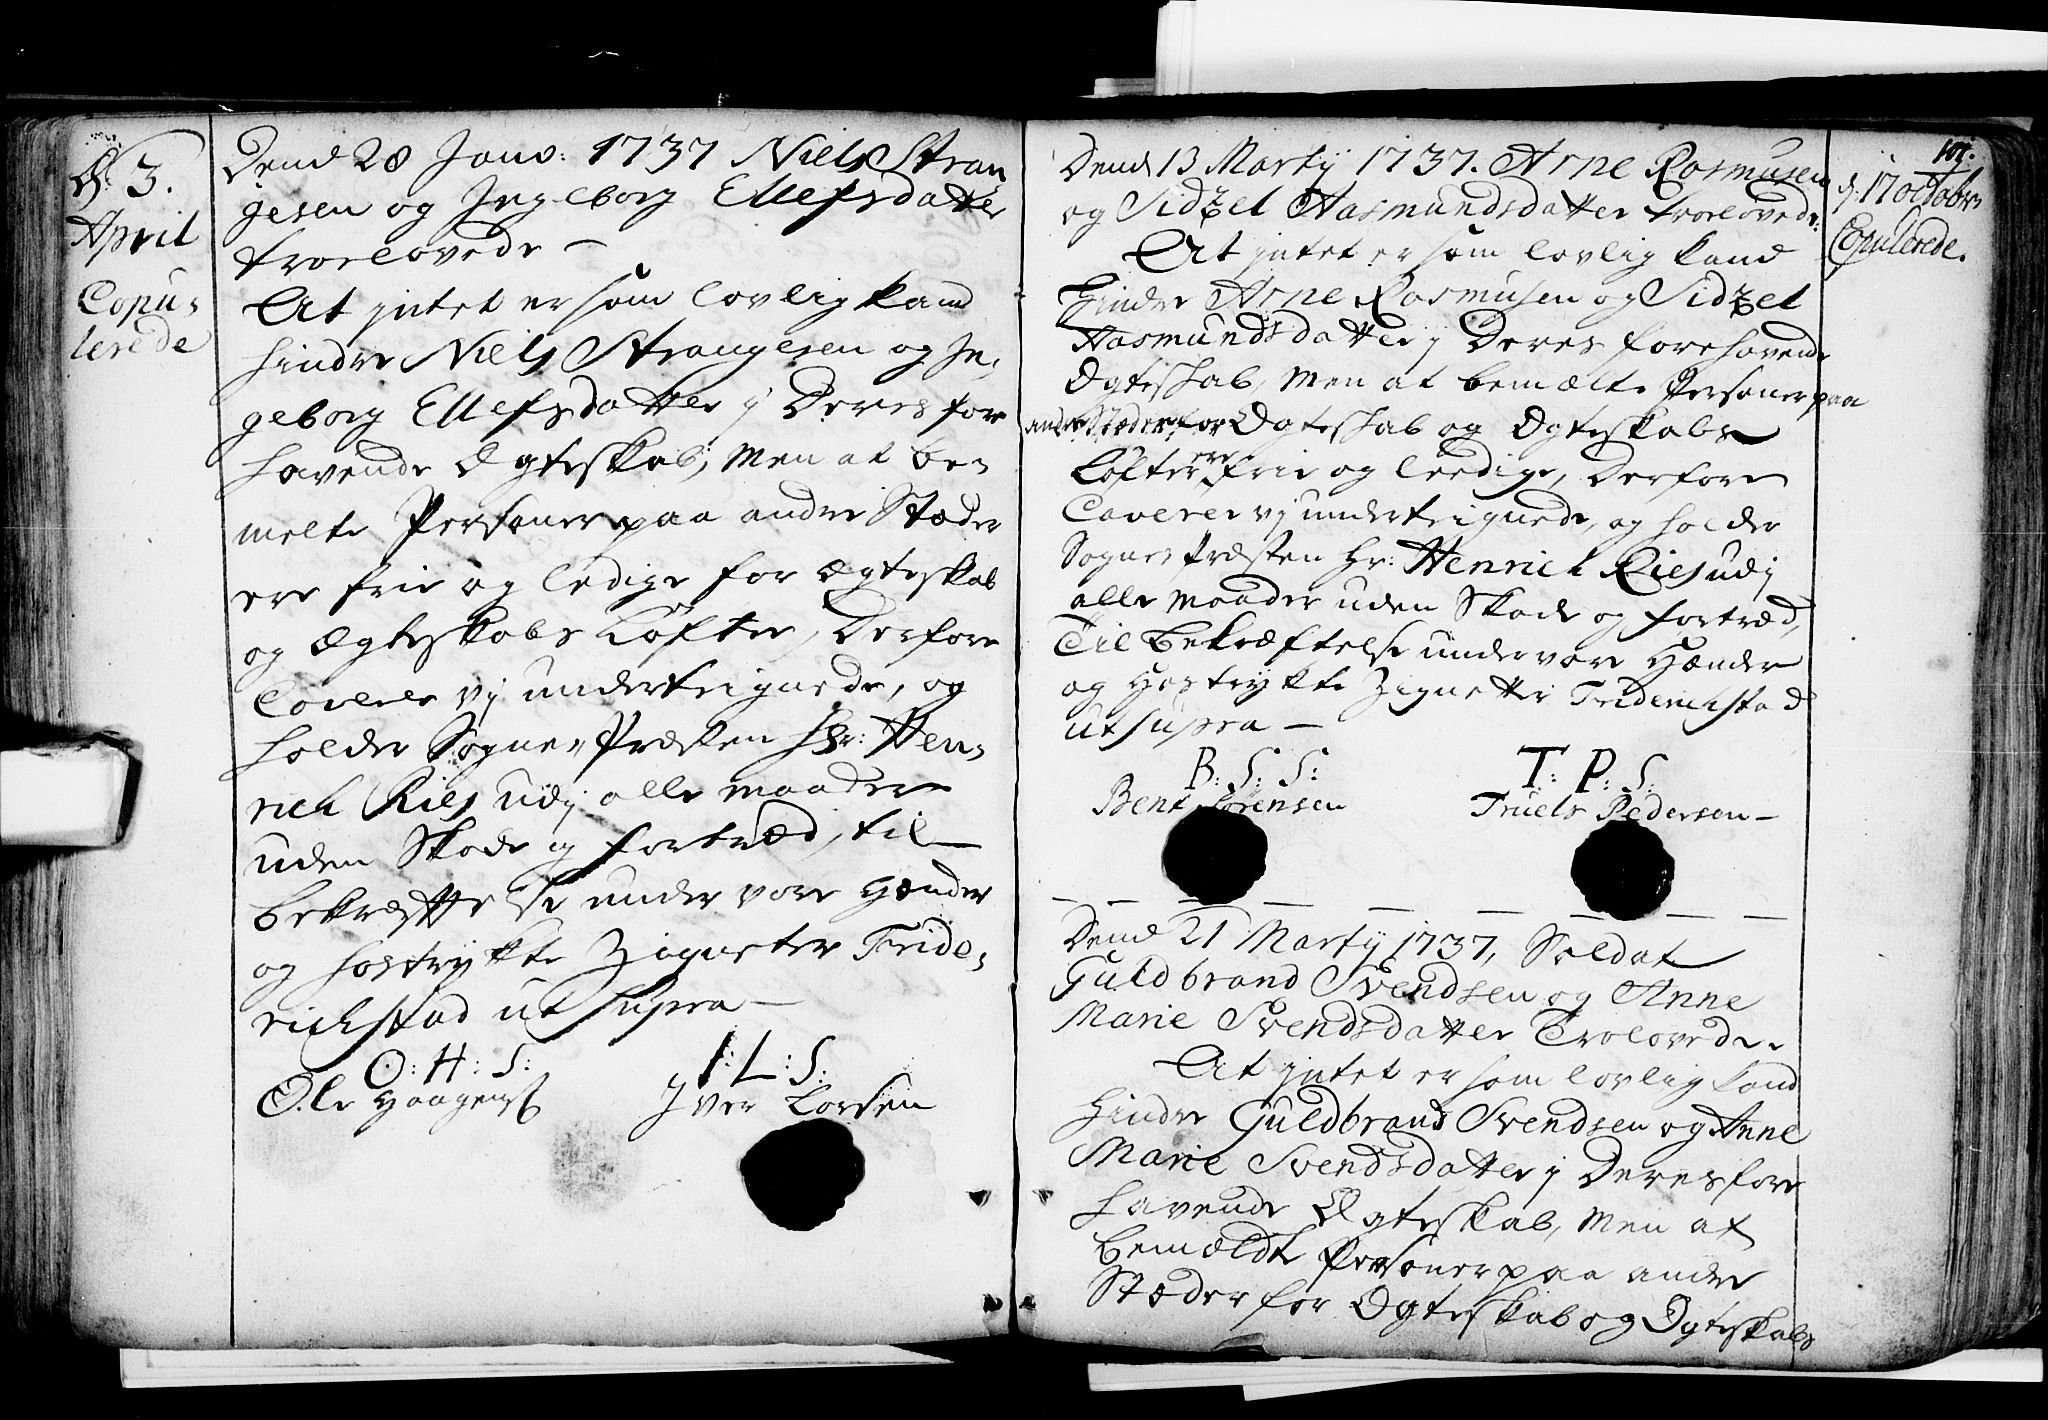 D. 3.
April
Copu-
lerede
Dend 28 Janv: 1737 Niels Stran
gesen og Ingeborg Ellefsdatter
troelovede –
At intet er som lovlig kand
hindre Niels Strangesen og In-
geborg Ellefsdatter j Deres fore
havende Ægteskab, Men at be-
melte Personer paa andre Stæder
ere frie og ledige for Ægteskab
og Ægteskabs Løfter, Derfore
Caverer vj undertegnede, og
holder Sogne-Præsten Hr: Hen-
rich Ries udj alle maader
uden Skade og fortræd, til
bekræftelse under vore Hænder
og hostrykte Zigneter Fride-
richstad ut supra –
O: H: S:
Ole Haagens
I: L: S:
Iver Larsen
107.
d. 17 octobr
Copulerede.
Dend 13 Martij 1737. Arne Rasmusen
og Sidzel Aasmundsdatter troelovede.
At intet er som lovlig kand
Hindre Arne Rasmusen og Sidzel
Aasmundsdatter j Deres forehavende
Ægteskab, Men at bemælte Personer paa
andre Stæder for Ægteskab og Ægteskabs
Løfter ere frie og leedige, Derfore
Caverer vj undertegnede, og holder
Sogne-Præsten Hr: Henrich Ries udj
alle Maader uden Skade og fortræd,
Til Bekræftelse under vore Hænder
og Hostrykte Zignetter Friderichstad
ut supra –
B: S: S:
Bent Sörensen
T: P: S:
Truels Pedersen –
Dend 21 Martij 1737, Soldat
Guldbrand Svendsen og Anne
Marie Svendsdatter Trolovede.
At intet er som lovlig kand
Hindre Guldbrand Svendsen og Anne
Marie Svendsdatter j Deres fore
havende Ægteskab, Men at
bemældte Personer paa andre
Stæder for Ægteskab og Ægteskabs